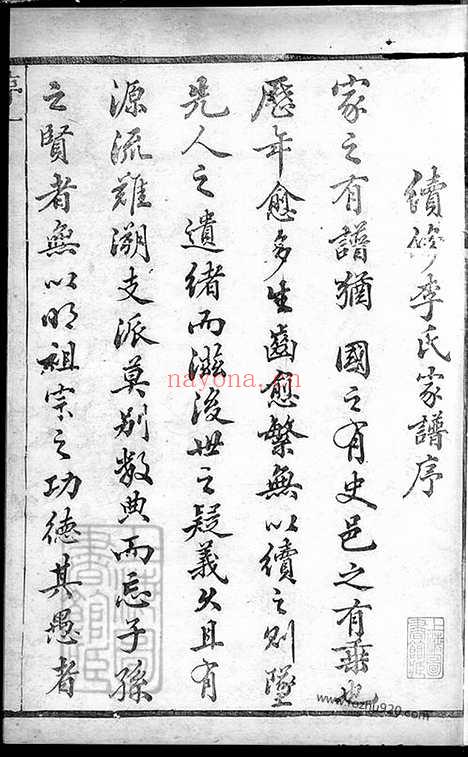 續修李氏家譜序
家之有譜猶國之有史邑之有乘也
歷年愈多生齒愈繁無以續之則墜
先人之遺緒而滋後世之疑義久且有
源流難溯支派莫別數典而忘子孫
之賢者無以明祖宗之功德其愚者
序一
nayona.cn
www.fozhu920.com